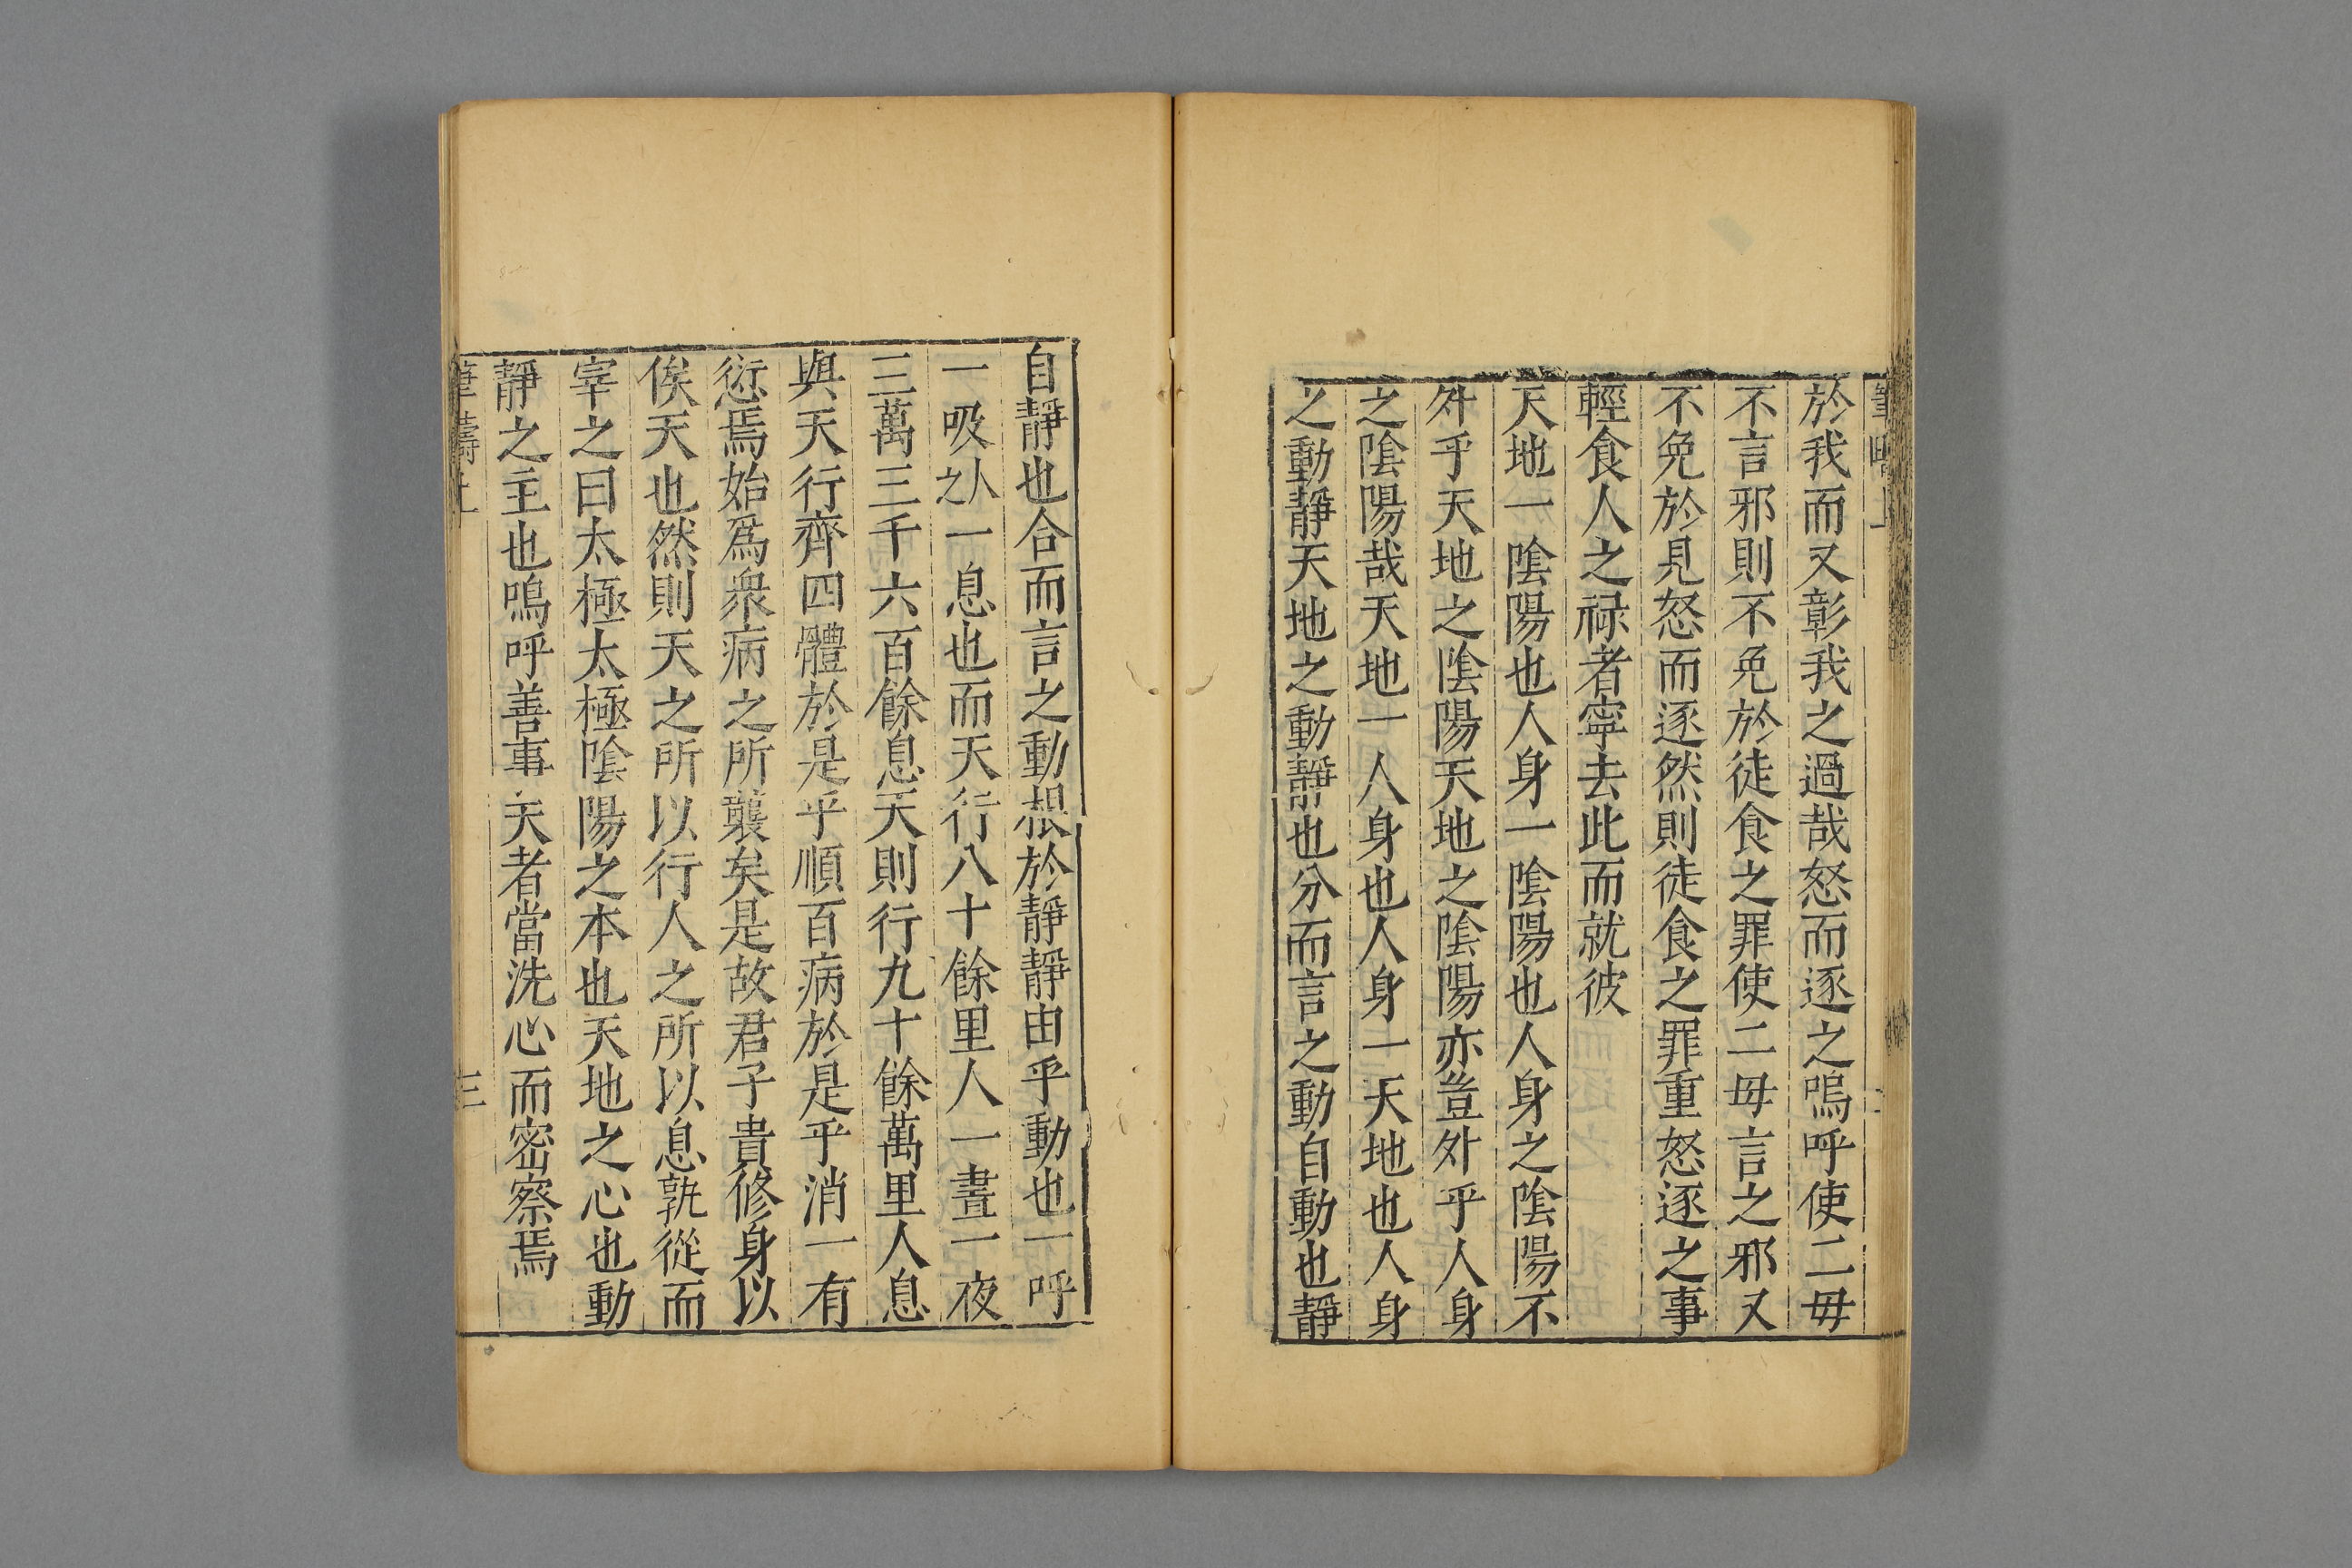 於我而又彰我之過哉怒而逐之嗚呼使二毋
不言邪則不免於徒食之罪使二毋言之邪又
不免於見怒而逐然則徒食之罪重怒逐之事
輕食人之祿者寧去此而就彼
天地一陰陽也人身一陰陽也人身之陰陽不
外乎天地之陰陽天地之陰陽亦豈外乎人身
之陰陽哉天地一人身也人身一天地也人身
之動靜天地之動靜也分而言之動自動也靜
自靜也合而言之動根於靜靜由乎動也一呼
一吸人之一息也而天行八十餘里人一晝一夜
三萬三千六百餘息天則行九十餘萬里人息
與天行齊四體於是乎順百病於是乎消一有
愆焉始爲衆病之所襲矣是故君子貴修身以
俟天也然則天之所以行人之所以息孰從而
宰之曰太極太極陰陽之本也天地之心也動
靜之主也嗚呼善事天者當洗心而密察焉
筆疇上 三